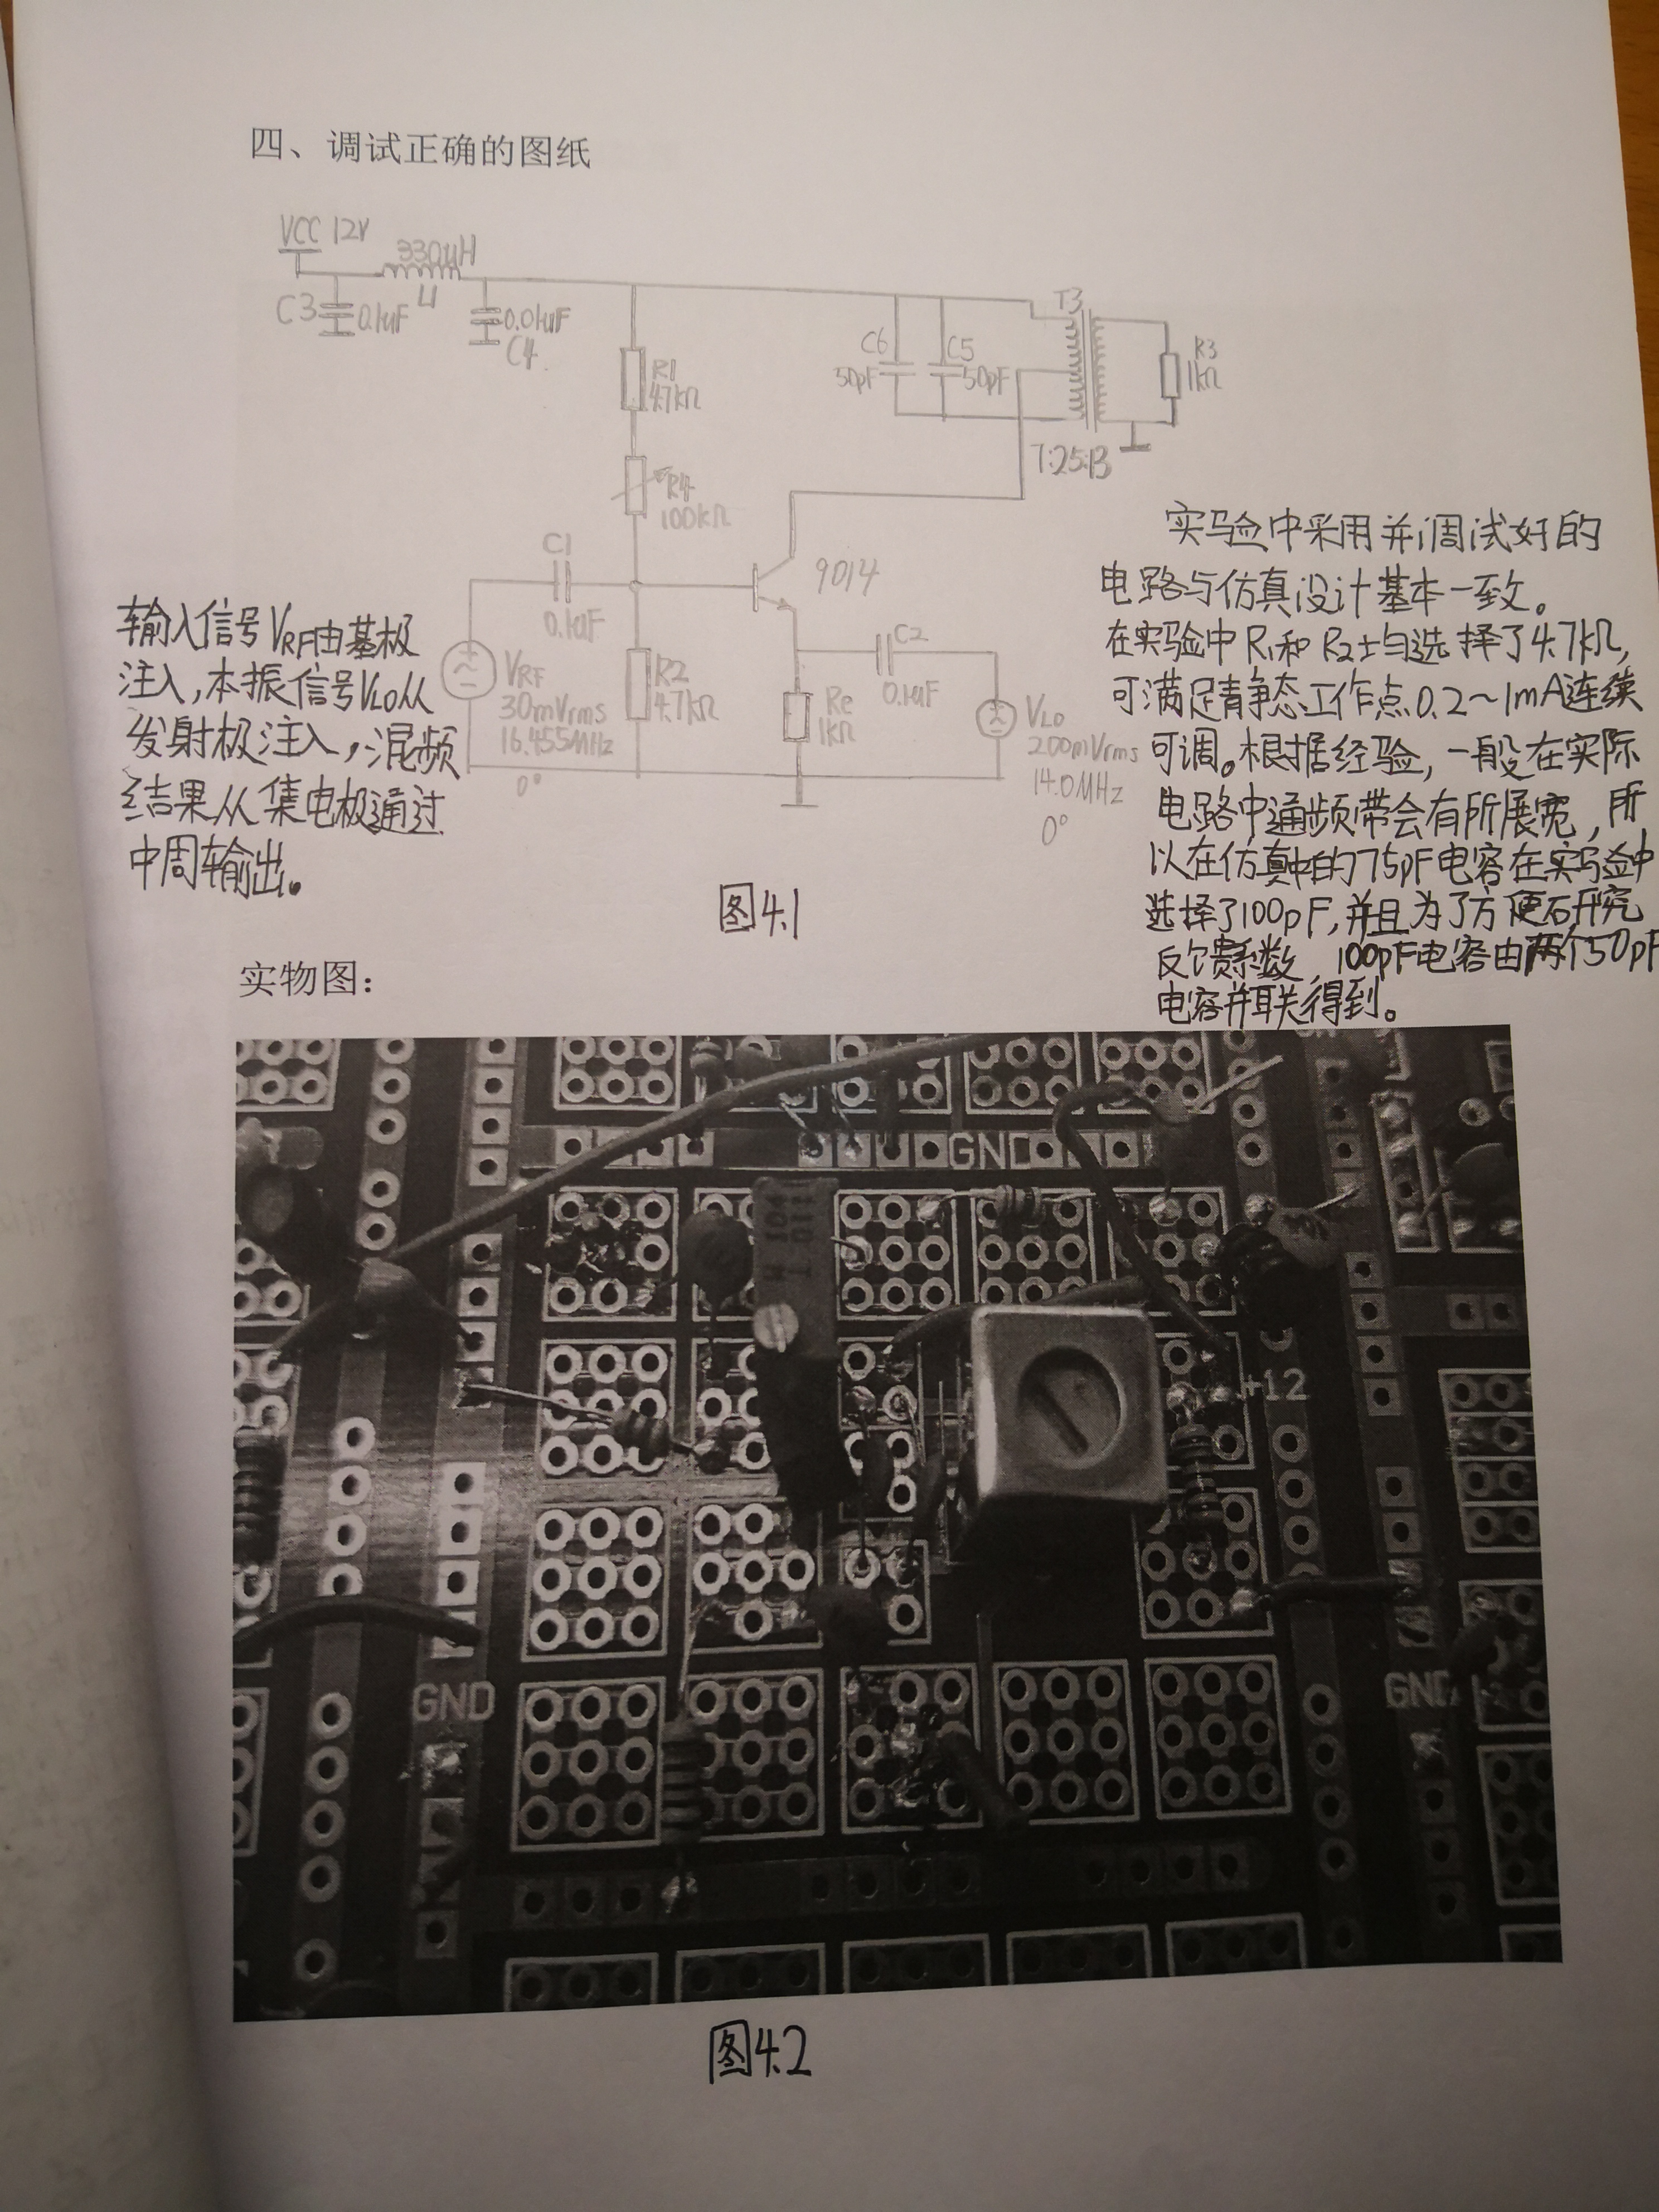 四、调试正确的图纸
VCC 12V
330μH
L1
C3
0.1uF
0.01uF
C4
R1
47kΩ
R4
100kΩ
C6
50pF
C5
50pF
T3
R3
1kΩ
7:25:13
9014
C1
0.1uF
VRF
30mVrms
16.455MHz
0°
R2
4.7kΩ
Re
1kΩ
C2
0.1uF
VLO
200mVrms
14.0MHz
0°
输入信号VRF由基极
注入,本振信号VLO从
发射极注入,混频
结果从集电极通过
中周输出。
实验中采用并调试好的
电路与仿真设计基本一致。
在实验中R1和R2均选择了4.7kΩ,
可满足静态工作点0.2~1mA连续
可调。根据经验,一般在实际
电路中通频带会有所展宽,所
以在仿真中的75pF电容在实验中
选择了100pF,并且为了方便研究
反馈系数,100pF电容由两个50pF
电容并联得到。
图4.1
实物图:
GND
104
+12
GND
GND
图4.2